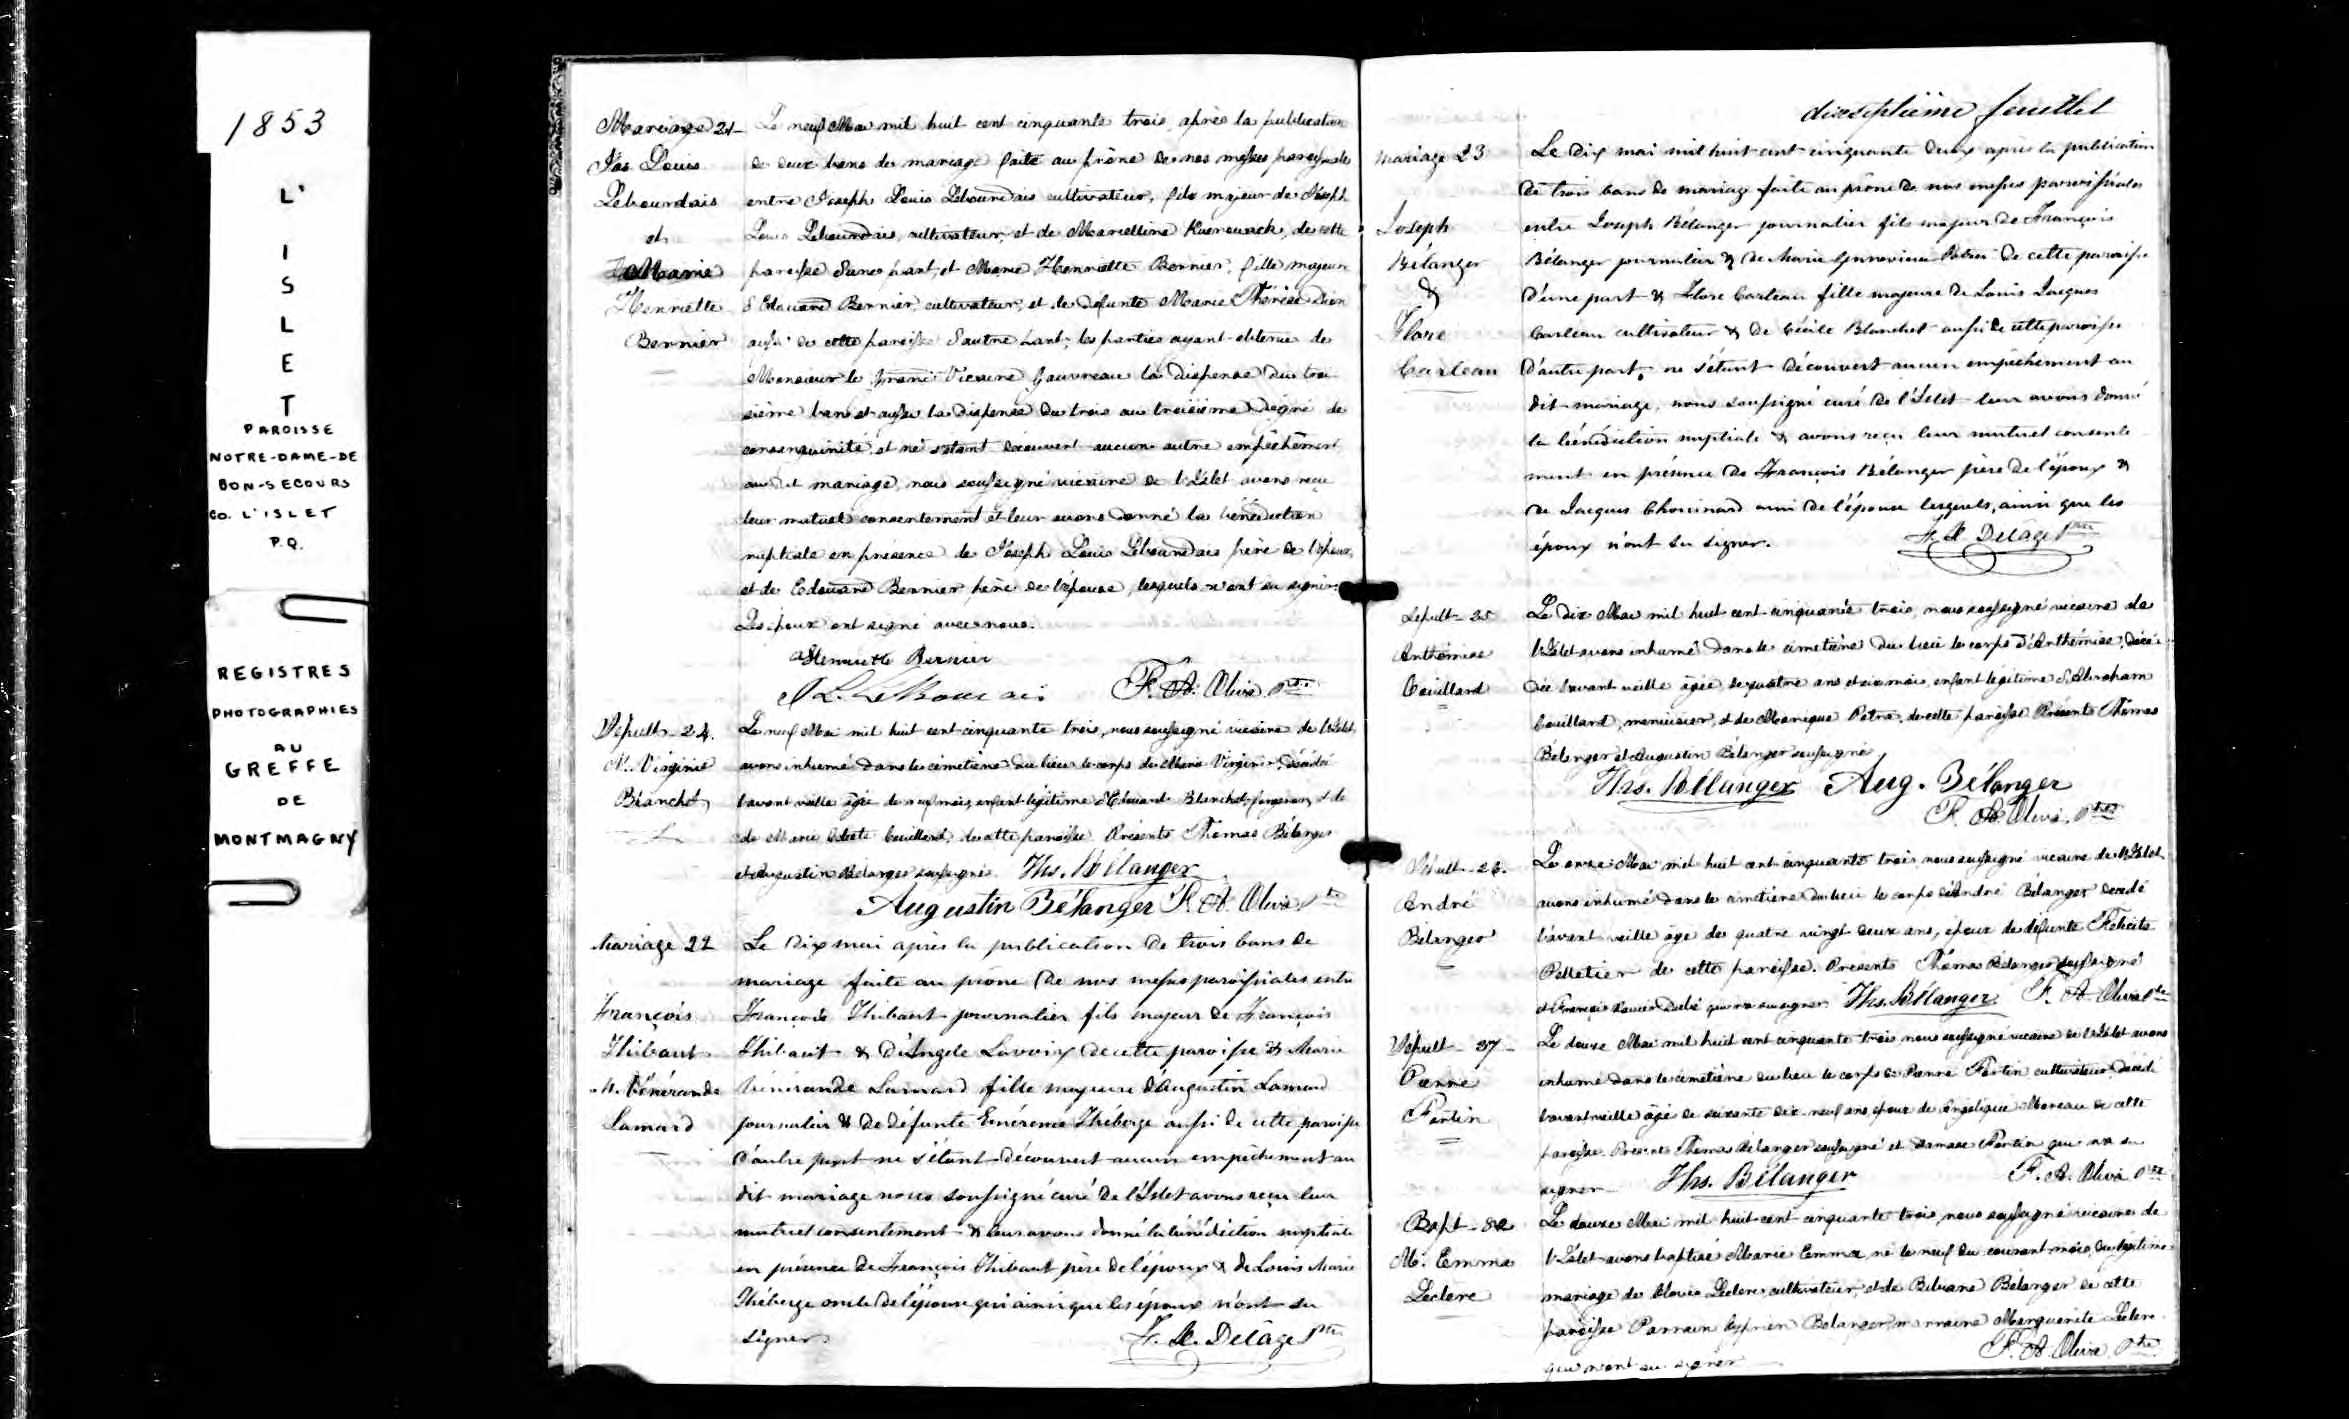 1853
L'
I
S
L
E
T
PAROISSE
NOTRE-DAME-DE
BON-SECOURS
CO. L'ISLET
P.Q.
REGISTRES
PHOTOGRAPHIES
AU
GREFFE
DE
MONTMAGNY
Mariage 21
Jos Louis
Lebourdais
et
Marie
Henriette
Bernier
Le neuf Mai mil huit cent cinquante trois, après la publication
de deux bans de mariage faite au prône de nos messes paroissiales
entre Joseph Louis Lebourdais cultivateur, fils majeur de Joseph
Louis Lebourdais, cultivateur, et de Marcelline Kuerouack, de cette
paroisse d'une part, et Marie Henriette Bernier, fille majeure
d'Edouard Bernier, cultivateur, et de defunte Marie Thérèse Dion
aussi de cette paroisse d'autre part; les parties ayant obtenue de
Monsieur le grand Vicaire Gauvreau la dispense du troi
sième bans et aussi la dispense du trois au troisième dégré de
consanguinité, et ne s'etant decouvert aucun autre empêchement
au dit mariage, nous soussigné vicaire de l'Islet avons reçu
leur mutuel consentement et leur avons donné la bénédiction
nuptiale en presence de Joseph Louis Lebourdais père de l'époux,
et de Edouard Bernier père de l'épouse, lesquels n'ont su signer.
Les époux ont signé avec nous.
Henriette Bernier
J L. LeBourdais F. A. Oliva Ptre
Sépult. 24.
M. Virginie
Blanchet
Le neuf Mai mil huit cent cinquante trois, nous soussigné vicaire de l'Islet
avons inhumé dans le cimetiere du lieu le corps de Marie Virginie, décédée
l'avant veille âgée de neuf mois, enfant légitime d'Edouard Blanchet, forgeron, et de
de Marie Couillard, de cette paroisse. Présents Thomas Bélanger
et Augustin Bélanger soussignés. Ths. Bélanger
Augustin Bélanger F. A. Oliva Ptre
Mariage 22
François
Thibaut
M. Vénérande
Lamard
Le dix mai après la publication de trois bans de
mariage faite au prône de nos messes paroissiales entre
François Thibaut journalier fils majeur de François
Thibaut & d'Angele Lavoix de cette paroisse & Marie
Vénérande Lamard fille majeure d'Augustin Lamard
journalier & de défunte Emérence Théberge aussi de cette paroisse
d'autre part ne s'étant découvert aucun empêchement au
dit mariage nous soussigné curé de l'Islet avons reçu leur
mutuel consentement & leur avons donné la bénédiction nuptiale
en présence de François Thibaut père de l'époux & de Louis Marie
Théberge oncle de l'épouse qui ainsi que les époux n'ont su
signer. F. X. Delâge Ptre
dixseptième feuillet
Mariage 23
Joseph
Bélanger
&
Flore
Carleau
Le dix mai mil huit cent cinquante deux après la publication
de trois bans de mariage faite au prône de nos messes paroissiales
entre Joseph Bélanger journalier fils majeur de François
Bélanger journalier & de Marie Genevieve Potras de cette paroisse
d'une part & Flore Carleau fille majeure de Louis Jacques
Carleau cultivateur & de Cécile Blanchet aussi de cette paroisse
d'autre part, ne s'étant découvert aucun empêchement au
dit mariage, nous soussigné curé de l'Islet leur avons donné
la bénédiction nuptiale & avons reçu leur mutuel consente
ment en présence de François Bélanger père de l'époux &
de Jacques Chouinard ami de l'épouse lesquels, ainsi que les
époux n'ont su signer. F. X. Delâge Ptre
Sépult. 25
Anthémise
Couillard
Le dix Mai mil huit cent cinquante trois, nous soussigné vicaire de
l'Islet avons inhumé dans le cimetière du lieu le corps d'Anthémise, décé-
dée l'avant veille âgée de quatre ans et six mois, enfant légitime d'Abraham
Couillard, menuisier, et de Monique Potra, de cette paroisse Présents Thomas
Bélanger et Augustin Bélanger soussignés
Ths. Bélanger Aug. Bélanger
F. A. Oliva, Ptre
Sépult. 26.
André
Bélanger
Le onze Mai mil huit cent cinquante trois, nous soussigné vicaire de l'Islet
avons inhumé dans le cimetière du lieu le corps d'André Bélanger décédé
l'avant veille âgé de quatre vingt deux ans, époux de défunte Félicité
Pelletier de cette paroisse. Présents Thomas Bélanger soussigné
et François Xavier Dubé qui n'a su signer. Ths. Bélanger F. A. Oliva Ptre
Sépult. 27
Pierre
Fortin
Le douze Mai mil huit cent cinquante trois nous soussigné vicaire de l'Islet avons
inhumé dans le cimetière du lieu le corps de Pierre Fortin cultivateur décédé
l'avant veille âgé de soixante dix neuf ans époux de Angélique Moreau de cette
paroisse. Présents Thomas Bélanger soussigné et Damase Fortin qui n'a su
signer Ths. Bélanger F. A. Oliva Ptre
Bapt. 82
M. Emma
Leclerc
Le douze Mai mil huit cent cinquante trois, nous soussigné vicaire de
l'Islet avons baptisé Marie Emma, né le neuf du courant mois, du légitime
mariage de Clovis Leclerc, cultivateur, et de Bibiane Bélanger de cette
paroisse Parrain Cyprien Bélanger, marraine Marguerite Leclerc
qui n'ont su signer F. A. Oliva Ptre